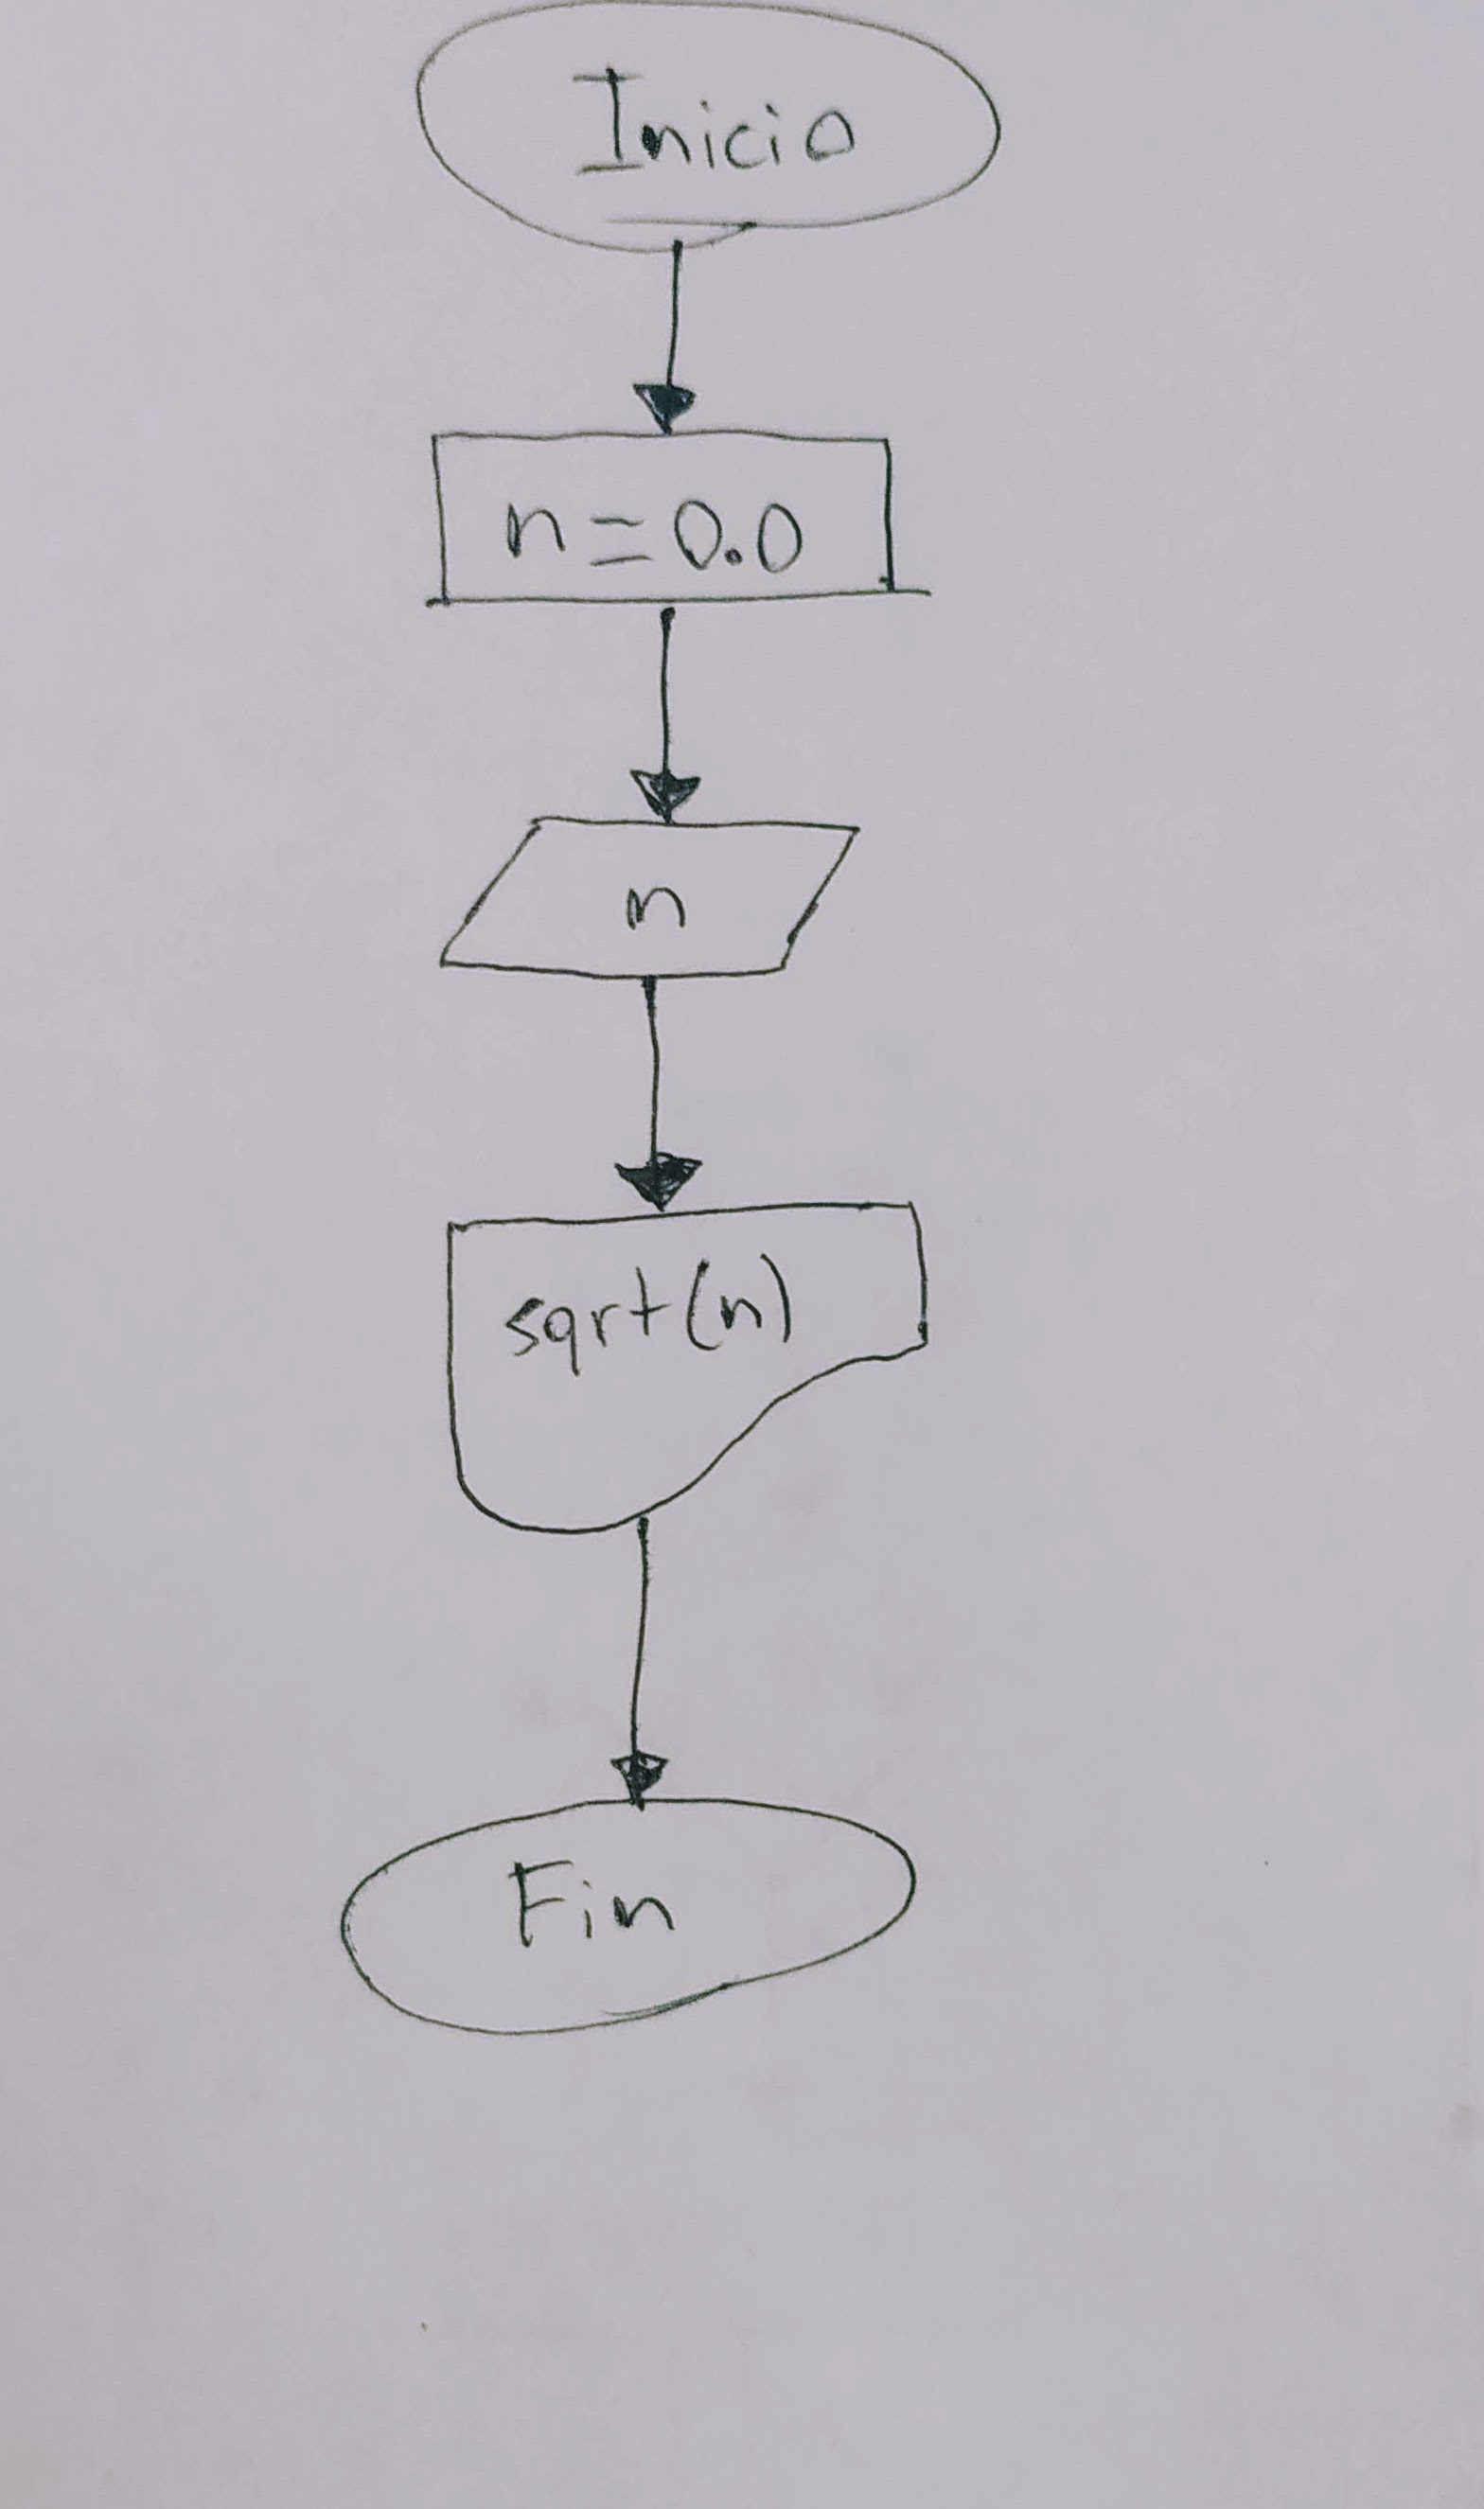 Inicio
n=0.0
n
sqrt(n)
Fin